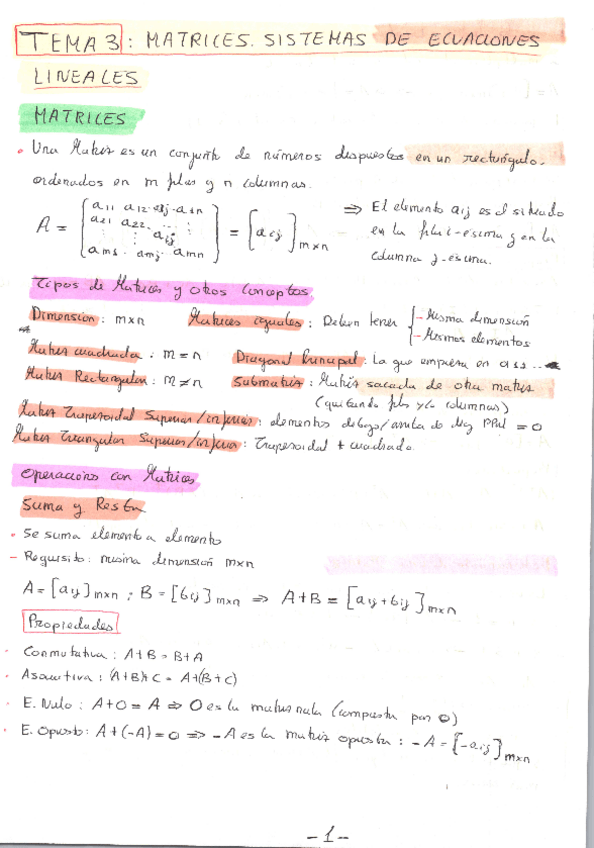 TEMA 3: MATRICES. SISTEMAS DE ECUACIONES
LINEALES
MATRICES
• Una Matriz es un conjunto de números dispuestos en un rectángulo.
ordenados en m filas y n columnas.
A = [a11 a12 ... a1j ... a1n
a21 a22 ...
aij
am1 ... amj ... amn] = [aij] m×n
⇒ El elemento aij es el situado
en la fila i-esima y en la
columna j-esima.
Tipos de Matrices y otros conceptos.
Dimensión: m×n Matrices iguales: Deben tener { - Misma dimensión
- Mismos elementos
Matriz cuadrada: m = n Diagonal Principal: La que empieza en a11 ...
Matriz Rectangular: m ≠ n Submatriz: Matriz sacada de otra matriz
(quitando filas y/o columnas)
Matriz Trapezoidal Superior/inferior: elementos debajo/arriba de = 0
Matriz Triangular Superior/inferior: Trapezoidal + cuadrada.
Operaciones con Matrices
Suma y Resta
• Se suma elemento a elemento
- Requisito: misma dimensión m×n
A = [aij] m×n ; B = [bij] m×n ⇒ A+B = [aij + bij] m×n
Propiedades
· Conmutativa: A+B = B+A
· Asociativa: (A+B)+C = A+(B+C)
· E. Nulo: A+0 = A ⇒ 0 es la matriz nula (compuesta por 0)
· E. Opuesto: A+(-A) = 0 ⇒ -A es la matriz opuesta: -A = [-aij] m×n
-1-